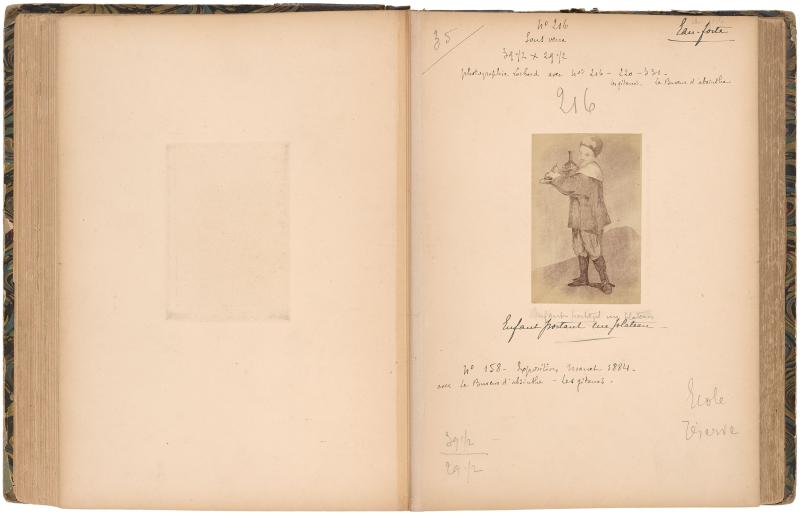 35
Nº 216
Eau-forte
Sous verre
39 1/2 x 29 1/2
photographie Lochard avec Nos 216 - 220 - 331 -
les gitanos. Le Buveur d'absinthe
216
Enfant portant un plateau
Enfant portant un plateau -
Nº 158 - Exposition Manet 1884 -
avec Le Buveur d'absinthe - Les gitanos -
Ecole
39 1/2
29 1/2